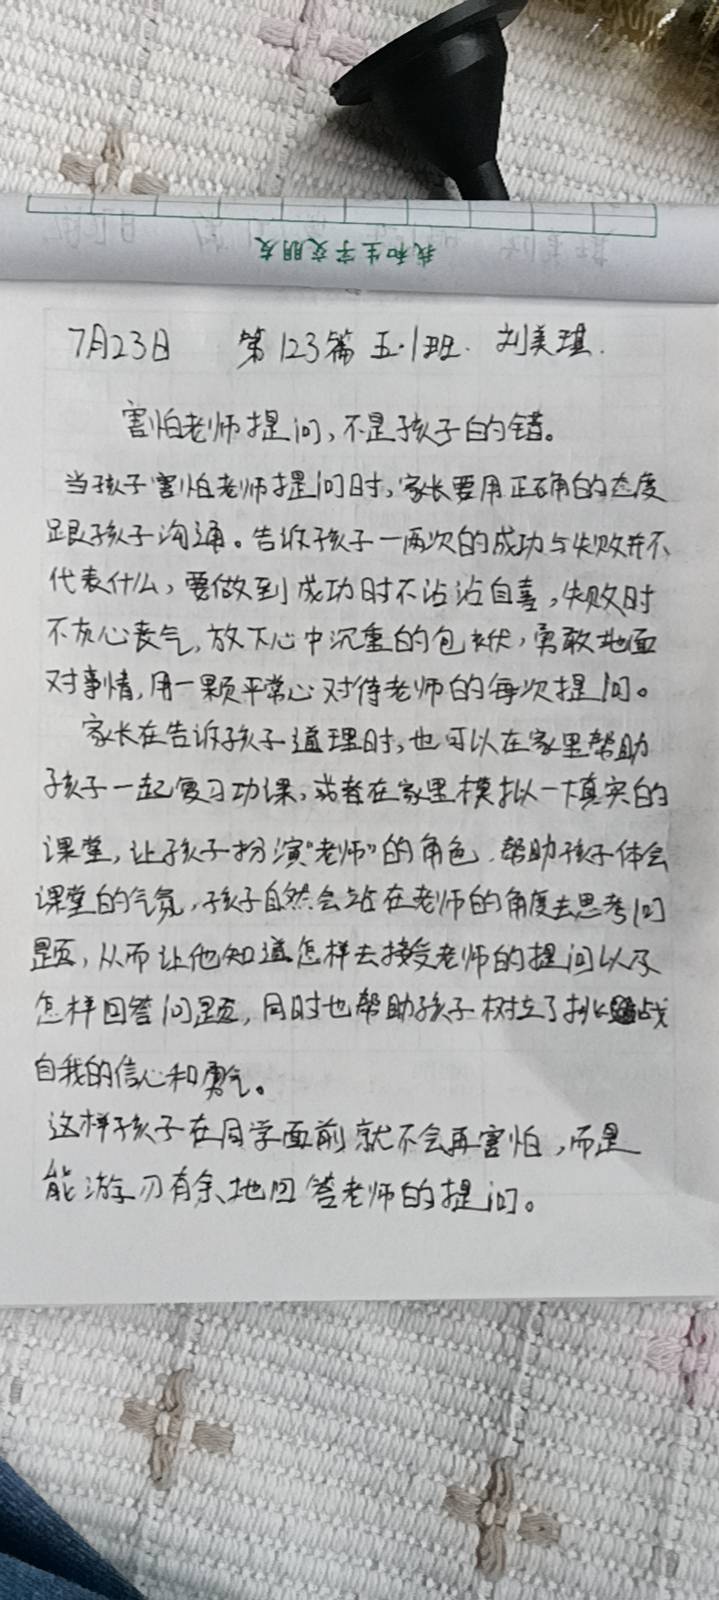 我和生字交朋友
7月23日 第123篇 五·1班. 刘美琪.
害怕老师提问,不是孩子的错。
当孩子害怕老师提问时,家长要用正确的态度
跟孩子沟通。告诉孩子一两次的成功与失败并不
代表什么,要做到成功时不沾沾自喜,失败时
不灰心丧气,放下心中沉重的包袱,勇敢地面
对事情,用一颗平常心对待老师的每次提问。
家长在告诉孩子道理时,也可以在家里帮助
孩子一起复习功课,或者在家里模拟一个真实的
课堂,让孩子扮演“老师”的角色.帮助孩子体会
课堂的气氛,孩子自然会站在老师的角度去思考问
题,从而让他知道怎样去接受老师的提问以及
怎样回答问题,同时也帮助孩子树立了挑战
自我的信心和勇气。
这样孩子在同学面前就不会再害怕,而是
能游刃有余地回答老师的提问。